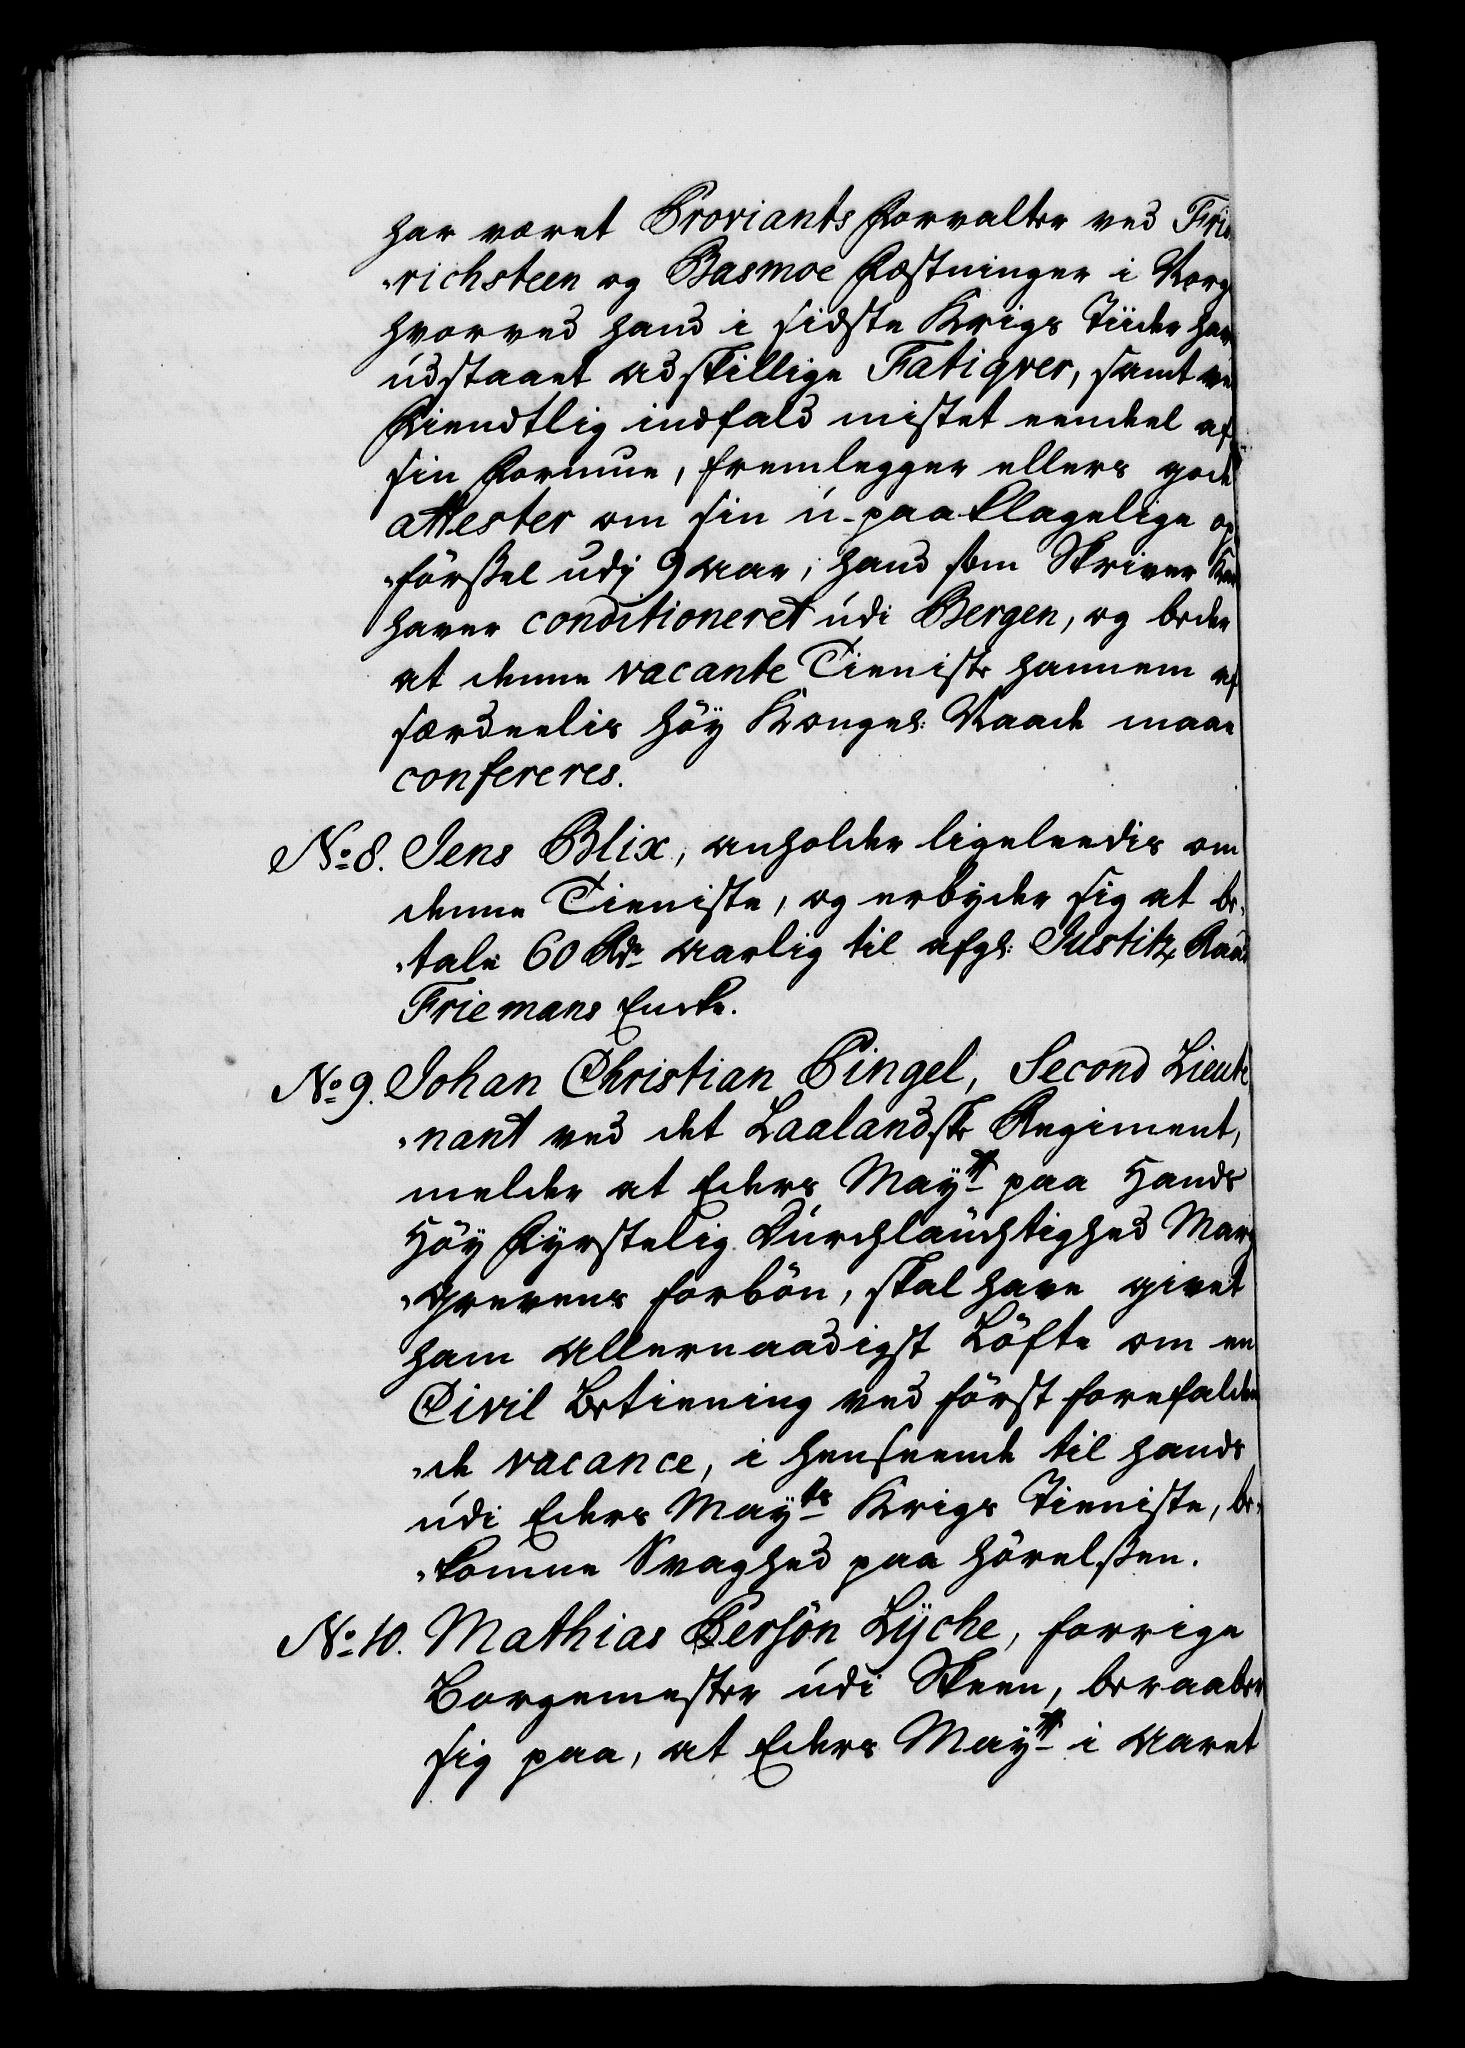 har været Proviants Forvalter ved Frie
„richsteen og Basmoe Fæstninger i Norge
hvorved hand i sidste Krigs Tiider har
udstaaet adskillige Fatiqver, samt ved
Fiendtlig indfald mistet eendeel af
sin Formue, fremlegger ellers gode
attester om sin u-paaklagelige op
„förßel udj 9 aar, hand som Skriver Karl
haver conditioneret udi Bergen, og beder
at denne vacante Tieniste hannem af
særdeelis höy Kongel: Naade maae
confereres.
No 8. Jens Blix, anholder ligeleedis om
denne Tieniste, og erbyder sig at be„
„tale 60 Rdr aarlig til afgl: Justitz Raad
Friemans Encke.
No 9. Johan Christian Pingel, Second Lieute
„nant ved det Laalandske Regiment,
melder at Eders Mayt paa Hands
Höy Fyrstelig Durchlauchtighed Marg
„Grevens forbön, skal have givet
ham allernaadigst Löfte om en
Civil Betiening ved först forefalden
„de vacance, i henseende til hands
udi Eders Mayts Krigs Tieniste, be„
„komne Svaghed paa hörelßen.
No 10. Mathias Persön Lyche, forrige
Borgemester udi Skeen, beraaber
sig paa, at Eders Mayt i aaret